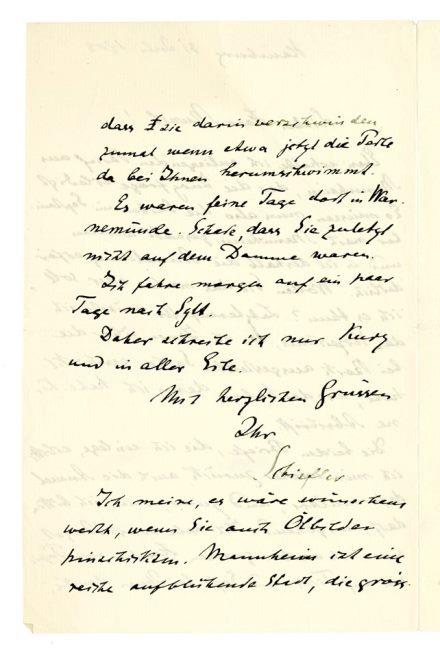 dass sie darin verschwinden
zumal wenn etwa jetzt die
da bei Ihnen herumschwimmt.
Es waren feine Tage dort in War-
nemünde. Schade, dass Sie zuletzt
nicht auf dem Damme waren.
Ich fahre morgen auf ein paar
Tage nach Sylt.
Daher schreibe ich nur Kurz
und in aller Eile.
Mit herzlichen Grüssen
Ihr
Schiefler
Ich meine, es wäre wünschens
werth, wenn Sie auch Ölbilder
hinschickten. Mannheim ist eine
reiche aufblühende Stadt, die gross-